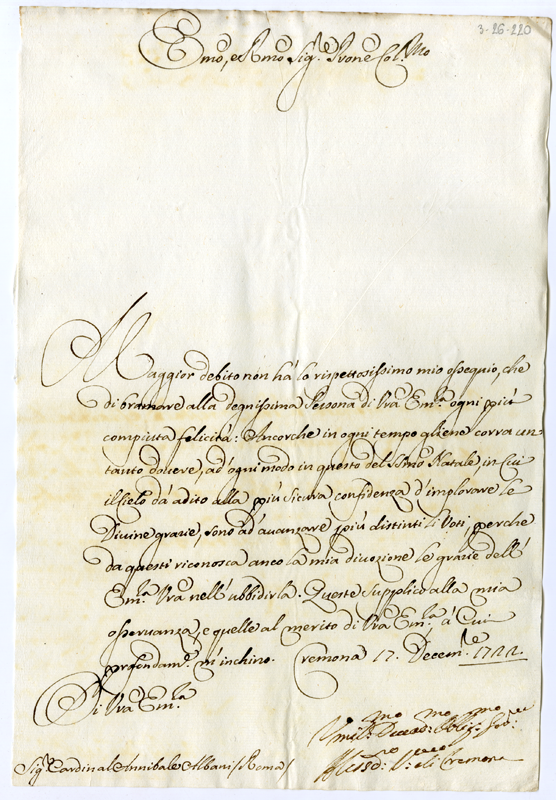 3-26-220
Emo, e Rmo Sig.r Prone Col.mo
Maggior debito non há lo rispettosissimo mio ossequio, che
di bramare alla degnissima Persona di Vra Em.a ogni piú
compiuta felicitá: Ancorche in ogni tempo gliene corra un
tanto dovere, ad ogni modo in questo del SSmo Natale in Cui
il Cielo dá adito alla piú sicura confidenza d'implorare le
Divine grazie, sono ad avanzare piú distinti li Voti, perche
da questi riconosca anco la mia divozione le grazie dell'
Em.a Vra nell'ubbidirla. Queste supplico alla mia
osservanza, e quelle al merito di Vra Em.a á Cui
profondam.e m'inchino. Cremona 17. Decem.e 1722.
Di Vra Em.a
Umil.mo Devot.mo Obblig.mo Ser.re
Aless.dro V.vo di Cremona
Sig.r Cardinal Annibale Albani / Roma /